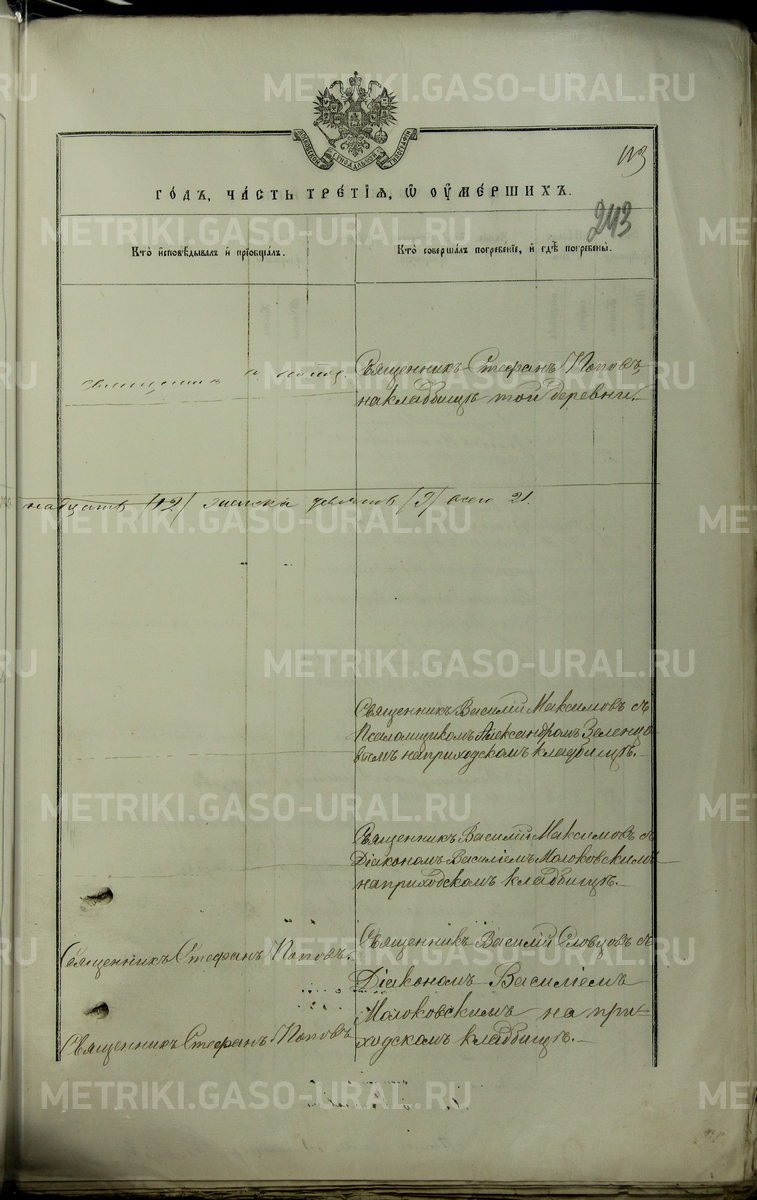 METRIKI.GASO-URAL.RU
113
ГО́ДЪ, ЧА́СТЬ ТРЕ́ТІѦ, Ѿ ОУ҆МЕ́РШИХЪ.
243
Кто̀ и҆сповѣ́дывалъ и҆ прїѡбща́лъ.
Кто̀ соверша́лъ погребе́нїе, и҆ гдѣ̀ погребены̀.
Священникъ Стефанъ Поповъ,
на кладбищѣ той деревни.
надцать (12) женска девять (9) всего 21.
Священникъ Василій Максимовъ съ
Псаломщикомъ Александромъ Зеленцо
вымъ на приходскомъ кладбищѣ.
Священникъ Василій Максимовъ съ
Діакономъ Василіемъ Молоковскимъ
на приходскомъ кладбищѣ.
Священникъ Стефанъ Поповъ.
Священникъ Василій Словцовъ съ
Діакономъ Василіемъ
Молоковскимъ на при-
ходскомъ кладбищѣ.
Священникъ Стефанъ Поповъ